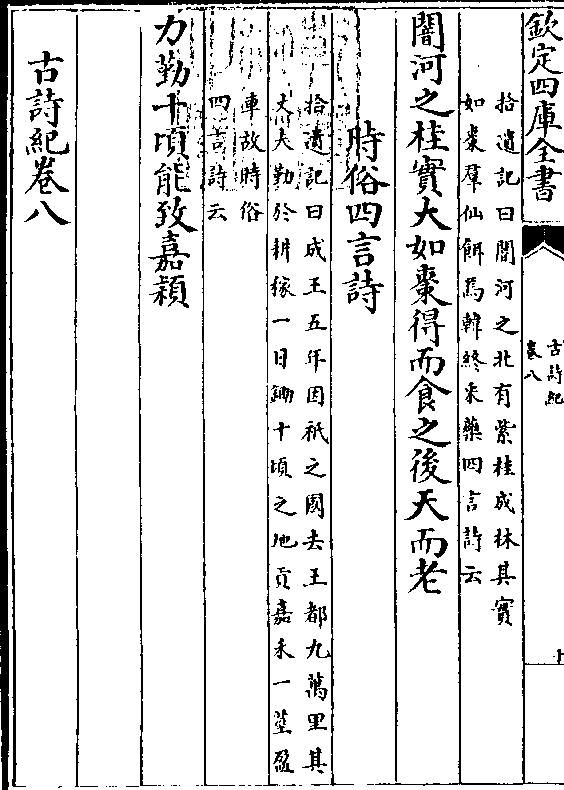 欽定四庫全書
古詩紀
卷八
十
拾遺記曰闇河之北有紫桂成林其實
如棗羣仙餌焉韓終采藥四言詩云
闇河之桂實大如棗得而食之後天而老
時俗四言詩
拾遺記曰成王五年因祇之國去王都九萬里其
丈夫勤於耕稼一日鋤十頃之地貢嘉禾一莖盈
車故時俗
四言詩云
力勤十頃能致嘉穎
古詩紀卷八